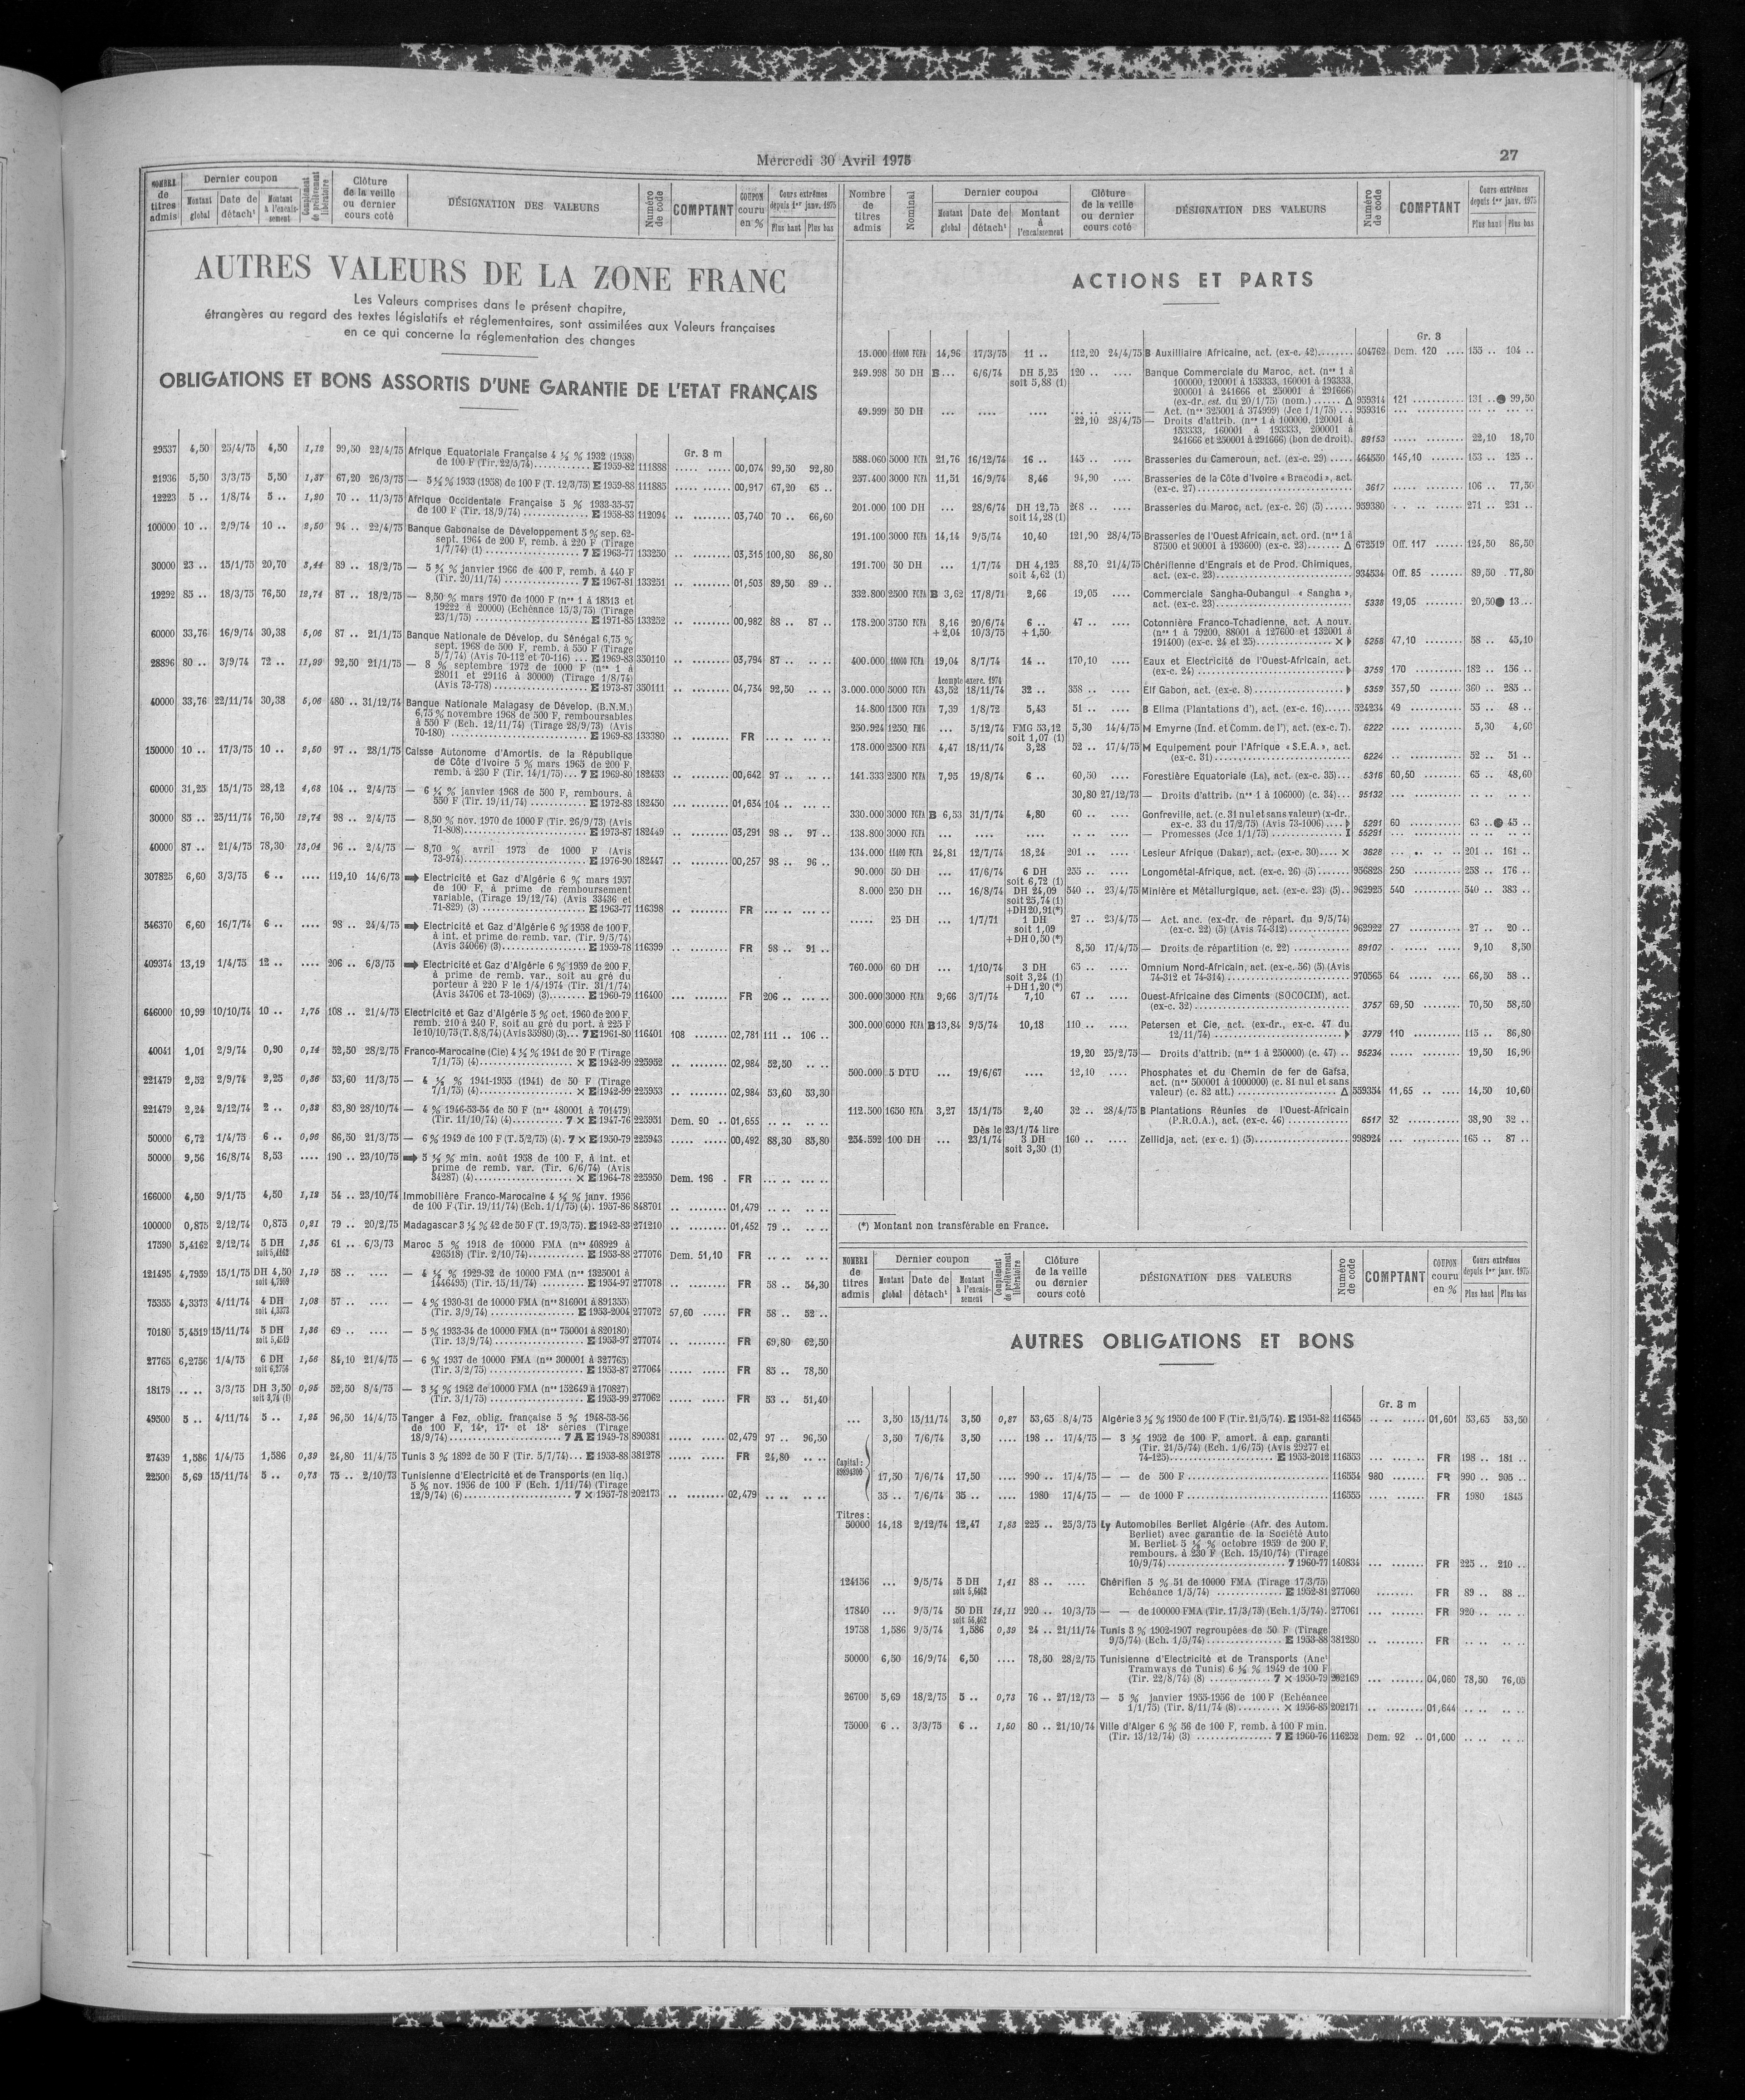 Mercredi 30 Avril 1975
27
NOMBRE de titres admis
Dernier coupon
Montant global
Date de détach¹
Montant à l'encaissement
Complément de prélèvement libératoire
Clôture de la veille ou dernier cours coté
DÉSIGNATION DES VALEURS
Numéro de code
COMPTANT
COUPON couru en %
Cours extrêmes depuis 1er janv. 1975
Plus haut
Plus bas
AUTRES VALEURS DE LA ZONE FRANC
Les Valeurs comprises dans le présent chapitre,
étrangères au regard des textes législatifs et réglementaires, sont assimilées aux Valeurs françaises
en ce qui concerne la réglementation des changes
OBLIGATIONS ET BONS ASSORTIS D'UNE GARANTIE DE L'ETAT FRANÇAIS
Gr. 8 m
29537 4,50 25/4/75 4,50 1,12 99,50 22/4/75 Afrique Equatoriale Française 4 ½ % 1932 (1958)
de 100 F (Tir. 22/5/74) E 1959-82 111888 00,074 99,50 92,80
21936 5,50 3/3/75 5,50 1,37 67,20 26/3/75 — 5 ½ % 1933 (1958) de 100 F (T. 12/3/75) E 1959-88 111885 00,917 67,20 65 ..
12223 5 .. 1/8/74 5 .. 1,20 70 .. 11/3/75 Afrique Occidentale Française 5 % 1933-35-57
de 100 F (Tir. 18/9/74) E 1958-83 112094 03,740 70 .. 66,60
100000 10 .. 2/9/74 10 .. 2,50 94 .. 22/4/75 Banque Gabonaise de Développement 5 % sep. 62-
sept. 1964 de 200 F, remb. à 220 F (Tirage
1/7/74) (1) 7 E 1963-77 133250 03,315 100,80 86,80
30000 23 .. 15/1/75 20,70 3,44 89 .. 18/2/75 — 5 ¾ % janvier 1966 de 400 F, remb. à 440 F
(Tir. 20/11/74) 7 E 1967-81 133251 01,503 89,50 89 ..
19292 85 .. 18/3/75 76,50 12,74 87 .. 18/2/75 — 8,50 % mars 1970 de 1000 F (nos 1 à 18513 et
19222 à 20000) (Echéance 15/3/75) (Tirage
23/1/75) E 1971-85 133252 00,982 88 .. 87 ..
60000 33,76 16/9/74 30,38 5,06 87 .. 21/1/75 Banque Nationale de Dévelop. du Sénégal 6,75 %
sept. 1968 de 500 F, remb. à 550 F (Tirage
5/7/74) (Avis 70-112 et 70-116) E 1969-83 350110 03,794 87 ..
28896 80 .. 3/9/74 72 .. 11,99 92,50 21/1/75 — 8 % septembre 1972 de 1000 F (nos 1 à
28011 et 29116 à 30000) (Tirage 1/8/74)
(Avis 73-778) E 1973-87 350111 04,734 92,50
40000 33,76 22/11/74 30,38 5,06 480 .. 31/12/74 Banque Nationale Malagasy de Dévelop. (B.N.M.)
6,75 % novembre 1968 de 500 F, remboursables
à 550 F (Ech. 12/11/74) (Tirage 28/9/73) (Avis
70-180) E 1969-83 133380 FR
150000 10 .. 17/3/75 10 .. 2,50 97 .. 28/1/75 Caisse Autonome d'Amortis. de la République
de Côte d'Ivoire 5 % mars 1965 de 200 F,
remb. à 230 F (Tir. 14/1/75) 7 E 1969-80 182453 00,642 97 ..
60000 31,25 15/1/75 28,12 4,68 104 .. 2/4/75 — 6 ¼ % janvier 1968 de 500 F, rembours. à
550 F (Tir. 19/11/74) E 1972-83 182450 01,634 104 ..
30000 85 .. 25/11/74 76,50 12,74 98 .. 2/4/75 — 8,50 % nov. 1970 de 1000 F (Tir. 26/9/73) (Avis
71-808) E 1973-87 182449 03,291 98 .. 97 ..
40000 87 .. 21/4/75 78,30 13,04 96 .. 2/4/75 — 8,70 % avril 1973 de 1000 F (Avis
73-974) E 1976-90 182447 00,257 98 .. 96 ..
307825 6,60 3/3/75 6 .. 119,10 14/6/73 ➡ Electricité et Gaz d'Algérie 6 % mars 1957
de 100 F, à prime de remboursement
variable, (Tirage 19/12/74) (Avis 33436 et
71-829) (3) E 1963-77 116398 FR
546370 6,60 16/7/74 6 .. 98 .. 24/4/75 ➡ Electricité et Gaz d'Algérie 6 % 1958 de 100 F,
à int. et prime de remb. var. (Tir. 9/5/74)
(Avis 34066) (3) E 1959-78 116399 FR 98 .. 91 ..
409374 13,19 1/4/75 12 .. 206 .. 6/3/75 ➡ Electricité et Gaz d'Algérie 6 % 1959 de 200 F,
à prime de remb. var., soit au gré du
porteur à 220 F le 1/4/1974 (Tir. 31/1/74)
(Avis 34706 et 73-1069) (3) E 1960-79 116400 FR 206 ..
646000 10,99 10/10/74 10 .. 1,75 108 .. 21/4/75 Electricité et Gaz d'Algérie 5 % oct. 1960 de 200 F,
remb. 210 à 240 F, soit au gré du port. à 225 F
le 10/10/75 (T. 8/8/74) (Avis 35980) (3) 7 E 1961-80 116401 108 02,781 111 .. 106 ..
40041 1,01 2/9/74 0,90 0,14 52,50 28/2/75 Franco-Marocaine (Cie) 4 ½ % 1941 de 20 F (Tirage
7/1/75) (4) × E 1942-99 225952 02,984 52,50
221479 2,52 2/9/74 2,25 0,36 53,60 11/3/75 — 4 ½ % 1941-1955 (1941) de 50 F (Tirage
7/1/75) (4) × E 1942-99 225953 02,984 53,60 53,30
221479 2,24 2/12/74 2 .. 0,32 83,80 28/10/74 — 4 % 1946-53-54 de 50 F (nos 480001 à 701479)
(Tir. 11/10/74) (4) 7 × E 1947-76 225951 Dem. 90 .. 01,655
50000 6,72 1/4/75 6 .. 0,96 86,50 21/3/75 — 6 % 1949 de 100 F (T. 5/2/75) (4). 7 × E 1950-79 225943 00,492 88,30 83,80
50000 9,56 16/8/74 8,53 190 .. 23/10/75 ➡ 5 ½ % min. août 1958 de 100 F, à int. et
prime de remb. var. (Tir. 6/6/74) (Avis
34287) (4) × E 1964-78 225950 Dem. 196 FR
166000 4,50 9/1/75 4,50 1,12 54 .. 23/10/74 Immobilière Franco-Marocaine 4 ½ % janv. 1956
de 100 F (Tir. 19/11/74) (Ech. 1/1/75) (4). 1957-86 848701 01,479
100000 0,875 2/12/74 0,875 0,21 79 .. 20/2/75 Madagascar 3 ½ % 42 de 50 F (T. 19/3/75). E 1942-83 271210 01,452 79 ..
17590 5,4162 2/12/74 5 DH soit 5,4162 1,35 61 .. 6/3/73 Maroc 5 % 1918 de 10000 FMA (nos 408929 à
426518) (Tir. 2/10/74) E 1953-88 277076 Dem. 51,10 FR
121495 4,7959 15/1/75 DH 4,50 soit 4,7959 1,19 58 .. — 4 ½ % 1929-32 de 10000 FMA (nos 1325001 à
1446495) (Tir. 15/11/74) E 1954-97 277078 FR 58 .. 54,30
75355 4,3373 4/11/74 4 DH soit 4,3373 1,08 57 .. — 4 % 1930-31 de 10000 FMA (nos 816001 à 891355)
(Tir. 3/9/74) E 1953-2004 277072 57,60 FR 58 .. 52 ..
70180 5,4519 15/11/74 5 DH soit 5,4519 1,36 69 .. — 5 % 1933-34 de 10000 FMA (nos 750001 à 820180)
(Tir. 13/9/74) E 1953-97 277074 FR 69,80 62,50
27765 6,2756 1/4/75 6 DH soit 6,2756 1,56 84,10 21/4/75 — 6 % 1937 de 10000 FMA (nos 300001 à 327765)
(Tir. 3/2/75) E 1953-87 277064 FR 85 .. 78,50
18179 .. .. 3/3/75 DH 3,50 soit 3,74 (1) 0,95 52,50 8/4/75 — 3 ½ % 1942 de 10000 FMA (nos 152649 à 170827)
(Tir. 3/1/75) E 1953-99 277062 FR 53 .. 51,40
49500 5 .. 4/11/74 5 .. 1,25 96,50 14/4/75 Tanger à Fez, oblig. française 5 % 1948-53-56
de 100 F, 14e, 17e et 18e séries (Tirage
18/9/74) 7 A E 1949-78 890381 02,479 97 .. 96,50
27439 1,586 1/4/75 1,586 0,39 24,80 11/4/75 Tunis 3 % 1892 de 50 F (Tir. 5/7/74) E 1953-88 381278 FR 24,80
22500 5,69 15/11/74 5 .. 0,73 75 .. 2/10/73 Tunisienne d'Electricité et de Transports (en liq.)
5 % nov. 1956 de 100 F (Ech. 1/11/74) (Tirage
12/9/74) (6) 7 × 1957-78 202173 02,479
Nombre de titres admis
Nominal
Dernier coupon
Montant global
Date de détach¹
Montant à l'encaissement
Clôture de la veille ou dernier cours coté
DÉSIGNATION DES VALEURS
Numéro de code
COMPTANT
Cours extrêmes depuis 1er janv. 1975
Plus haut
Plus bas
ACTIONS ET PARTS
Gr. 8
15.000 11000 FCFA 14,96 17/3/75 11 .. 112,20 24/4/75 B Auxilliaire Africaine, act. (ex-c. 42) 404762 Dem. 120 155 .. 104 ..
249.998 50 DH B ... 6/6/74 DH 5,25 soit 5,88 (1) 120 .. Banque Commerciale du Maroc, act. (nos 1 à
100000, 120001 à 153333, 160001 à 193333,
200001 à 241666 et 250001 à 291666)
(ex-dr. est. du 20/1/75) (nom.) Δ 959314 121 131 .. ● 99,50
49.999 50 DH — Act. (nos 325001 à 374999) (Jce 1/1/75) 959316
22,10 28/4/75 — Droits d'attrib. (nos 1 à 100000, 120001 à
153333, 160001 à 193333, 200001 à
241666 et 250001 à 291666) (bon de droit). 89153 22,10 18,70
588.060 5000 FCFA 21,76 16/12/74 16 .. 145 .. Brasseries du Cameroun, act. (ex-c. 29) 464550 145,10 153 .. 125 ..
257.400 3000 FCFA 11,51 16/9/74 8,46 94,90 Brasseries de la Côte d'Ivoire « Bracodi », act.
(ex-c. 27) 3617 106 .. 77,50
201.000 100 DH ... 28/6/74 DH 12,75 soit 14,28 (1) 268 .. Brasseries du Maroc, act. (ex-c. 26) (5) 959380 271 .. 231 ..
191.100 3000 FCFA 14,14 9/5/74 10,40 121,90 28/4/75 Brasseries de l'Ouest Africain, act. ord. (nos 1 à
87500 et 90001 à 193600) (ex-c. 23) Δ 672519 Off. 117 124,50 86,50
191.700 50 DH ... 1/7/74 DH 4,125 soit 4,62 (1) 88,70 21/4/75 Chérifienne d'Engrais et de Prod. Chimiques,
act. (ex-c. 23) 934534 Off. 85 89,50 77,80
332.800 2500 FCFA B 3,62 17/8/71 2,66 19,05 Commerciale Sangha-Oubangui « Sangha »,
act. (ex-c. 23) 5338 19,05 20,50 ● 13 ..
178.200 3750 FCFA 8,16 20/6/74 6 .. 47 .. Cotonnière Franco-Tchadienne, act. A nouv.
+ 2,04 10/3/75 + 1,50 (nos 1 à 79200, 88001 à 127600 et 132001 à
191400) (ex-c. 24 et 25) × 5258 47,10 58 .. 45,10
400.000 10000 FCFA 19,04 8/7/74 14 .. 170,10 Eaux et Electricité de l'Ouest-Africain, act.
(ex-c. 24) 3758 170 182 .. 156 ..
Acompte exerc. 1974
3.000.000 5000 FCFA 43,52 18/11/74 32 .. 358 .. Elf Gabon, act. (ex-c. 8) 5359 357,50 360 .. 285 ..
14.800 1500 FCFA 7,39 1/8/72 5,43 51 .. B Elima (Plantations d'), act. (ex-c. 16) 524234 49 55 .. 48 ..
250.924 1250 FMG ... 5/12/74 FMG 53,12 soit 1,07 (1) 5,30 14/4/75 M Emyrne (Ind. et Comm. de l'), act. (ex-c. 7). 6222 5,30 4,60
178.000 2500 FCFA 4,47 18/11/74 3,28 52 .. 17/4/75 M Equipement pour l'Afrique « S.E.A. », act.
(ex-c. 31) 6224 52 .. 51 ..
141.333 2500 FCFA 7,95 19/8/74 6 .. 60,50 Forestière Equatoriale (La), act. (ex-c. 35) 5316 60,50 65 .. 48,60
30,80 27/12/73 — Droits d'attrib. (nos 1 à 106000) (c. 34) 95132
330.000 3000 FCFA B 6,53 31/7/74 4,80 60 .. Gonfreville, act. (c. 31 nul et sans valeur) (x-dr.
ex-c. 33 du 17/2/75) (Avis 73-1006) 5291 60 63 .. ● 45 ..
138.800 3000 FCFA — Promesses (Jce 1/1/75) I 55291
134.000 11400 FCFA 24,81 12/7/74 18,24 201 .. Lesieur Afrique (Dakar), act. (ex-c. 30) × 3628 201 .. 161 ..
90.000 50 DH ... 17/6/74 6 DH soit 6,72 (1) 255 .. Longométal-Afrique, act. (ex-c. 26) (5) 956828 250 258 .. 176 ..
8.000 250 DH ... 16/8/74 DH 24,09 soit 25,74 (1) +DH 20,91(*) 540 .. 23/4/75 Minière et Métallurgique, act. (ex-c. 23) (5) 962925 540 540 .. 383 ..
..... 25 DH ... 1/7/71 1 DH soit 1,09 +DH 0,50 (*) 27 .. 23/4/75 — Act. anc. (ex-dr. de répart. du 9/5/74)
(ex-c. 22) (5) (Avis 74-312) 962922 27 27 .. 20 ..
8,50 17/4/75 — Droits de répartition (c. 22) 89107 9,10 8,50
760.000 60 DH ... 1/10/74 3 DH soit 3,24 (1) +DH 1,20 (*) 65 .. Omnium Nord-Africain, act. (ex-c. 56) (5) (Avis
74-312 et 74-314) 970565 64 66,50 58 ..
300.000 3000 FCFA 9,66 3/7/74 7,10 67 .. Ouest-Africaine des Ciments (SOCOCIM), act.
(ex-c. 32) 3757 69,50 70,50 58,50
300.000 6000 FCFA B 13,84 9/5/74 10,18 110 .. Petersen et Cie, act. (ex-dr., ex-c. 47 du
12/11/74) 3779 110 115 .. 86,80
19,20 25/2/75 — Droits d'attrib. (nos 1 à 250000) (c. 47) 95234 19,50 16,90
500.000 5 DTU ... 19/6/67 .... 12,10 Phosphates et du Chemin de fer de Gafsa,
act. (nos 500001 à 1000000) (c. 81 nul et sans
valeur) (c. 82 att.) Δ 559354 11,65 14,50 10,60
112.500 1650 FCFA 3,27 15/1/75 2,40 32 .. 28/4/75 B Plantations Réunies de l'Ouest-Africain
(P.R.O.A.), act. (ex-c. 46) 6517 32 38,90 32 ..
Dès le 23/1/74 lire
254.592 100 DH ... 23/1/74 3 DH soit 3,30 (1) 160 .. Zellidja, act. (ex c. 1) (5) 998924 165 .. 87 ..
(*) Montant non transférable en France.
NOMBRE de titres admis
Dernier coupon
Montant global
Date de détach¹
Montant à l'encaissement
Complément de prélèvement libératoire
Clôture de la veille ou dernier cours coté
DÉSIGNATION DES VALEURS
Numéro de code
COMPTANT
COUPON couru en %
Cours extrêmes depuis 1er janv. 1975
Plus haut
Plus bas
AUTRES OBLIGATIONS ET BONS
Gr. 8 m
... 3,50 15/11/74 3,50 0,87 53,65 8/4/75 Algérie 3 ½ % 1950 de 100 F (Tir. 21/5/74). E 1951-82 116545 01,601 53,65 53,50
3,50 7/6/74 3,50 198 .. 17/4/75 — 3 ½ 1952 de 100 F, amort. à cap. garanti
(Tir. 21/5/74) (Ech. 1/6/75) (Avis 29277 et
74-125) E 1953-2012 116553 FR 198 .. 181 ..
Capital :
17,50 7/6/74 17,50 990 .. 17/4/75 — — de 500 F 116554 980 FR 990 .. 905 ..
35 .. 7/6/74 35 .. 1980 17/4/75 — — de 1000 F 116555 FR 1980 1845
Titres :
50000 14,18 2/12/74 12,47 1,83 225 .. 25/3/75 Ly Automobiles Berliet Algérie (Afr. des Autom.
Berliet) avec garantie de la Société Auto
M. Berliet 5 ½ % octobre 1959 de 200 F,
rembours. à 230 F (Ech. 15/10/74) (Tirage
10/9/74) 7 1960-77 140834 FR 225 .. 210 ..
124156 ... 9/5/74 5 DH soit 5,6462 1,41 88 .. Chérifien 5 % 51 de 10000 FMA (Tirage 17/3/75)
Echéance 1/5/74) E 1952-81 277060 FR 89 .. 88 ..
17840 ... 9/5/74 50 DH soit 56,462 14,11 920 .. 10/3/75 — — de 100000 FMA (Tir. 17/3/75) (Ech. 1/5/74). 277061 FR 920 ..
19758 1,586 9/5/74 1,586 0,39 24 .. 21/11/74 Tunis 3 % 1902-1907 regroupées de 50 F (Tirage
9/5/74) (Ech. 1/5/74) E 1953-88 381280 FR
50000 6,50 16/9/74 6,50 78,50 28/2/75 Tunisienne d'Electricité et de Transports (Anct
Tramways de Tunis) 6 ½ % 1949 de 100 F
(Tir. 22/8/74) (8) 7 × 1950-79 202169 04,060 78,50 76,05
26700 5,69 18/2/75 5 .. 0,73 76 .. 27/12/73 — 5 % janvier 1955-1956 de 100 F (Echéance
1/1/75) (Tir. 8/11/74 (8) × 1956-85 202171 01,644
75000 6 .. 3/3/75 6 .. 1,50 80 .. 21/10/74 Ville d'Alger 6 % 56 de 100 F, remb. à 100 F min.
(Tir. 13/12/74) (3) 7 E 1960-76 116252 Dem. 92 01,000